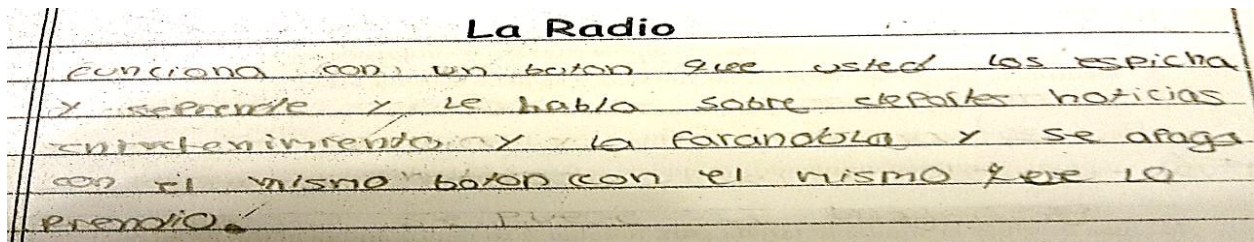 La Radio
funciona con un boton que usted los espicha
y seprende y le habla sobre deportes noticias
entretenimiento y la farandula y se apaga
con el mismo boton con el mismo que lo
prendio.